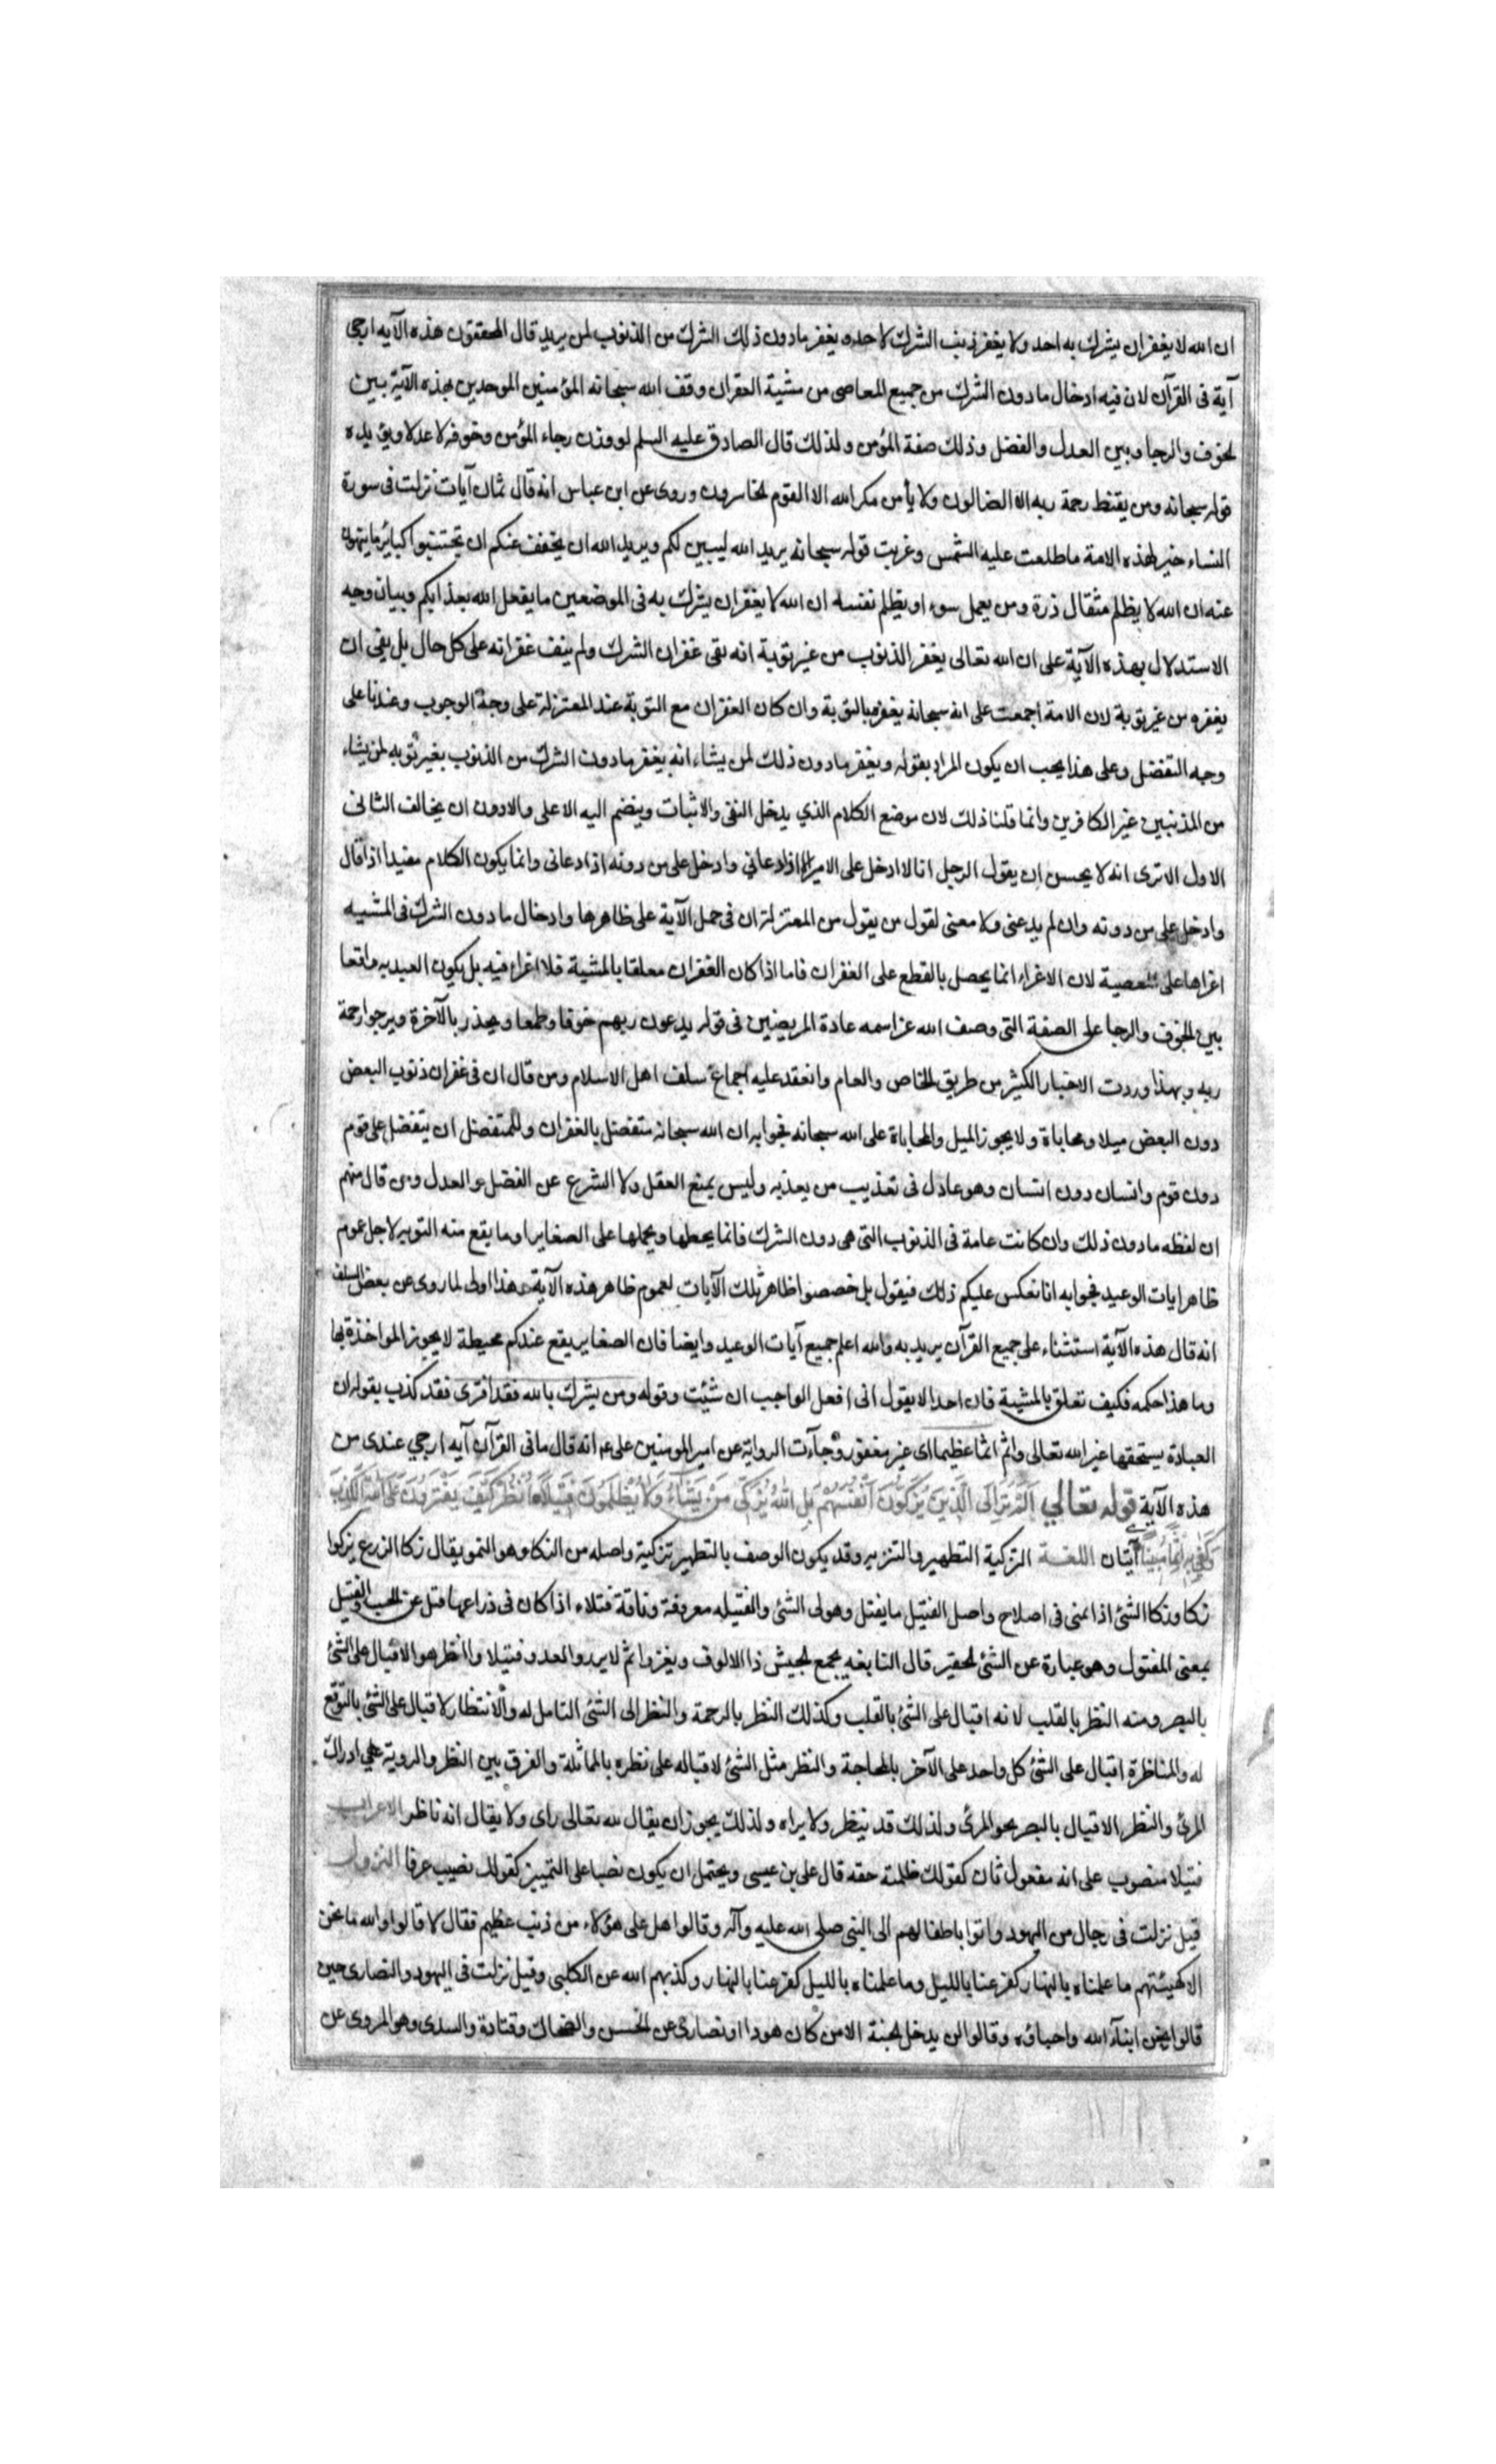 ان الله لا يغفر ان يشرك به احد ولا يغفر ذنب الشرك لاحد ويغفر مادون ذلك الشرك من الذنوب لمن يريد قال المحققون هذه الآيه ارجى
آية فى القرآن لان فيه ادخال مادون الشرك من جميع المعاصى من مشية الغفران وقف الله سبحانه المؤمنين الموحدين بهذه الآية بين
الخوف والرجا وبين العدل والفضل وذلك صفة المؤمن ولذلك قال الصادق عليه السلم لو وزن رجاء المؤمن وخوفه لاعتدلا ويؤيده
قوله سبحانه ومن يقنط رحمة ربه الا الضالون ولا يأمن مكر الله الا القوم الخاسرون وروى عن ابن عباس انه قال ثمان آيات نزلت فى سورة
النساء خير لهذه الامة ماطلعت عليه الشمس وغربت قوله سبحانه يريد الله ليبين لكم ويريد الله ان يخفف عنكم ان تجتنبوا كبائر ما تنهون
عنه ان الله لا يظلم مثقال ذرة ومن يعمل سوء او يظلم نفسه ان الله لا يغفر ان يشرك به فى الموضعين ما يفعل الله بعذابكم وبيان وجه
الاستدلال بهذه الآية على ان الله تعالى يغفر الذنوب من غير توبة انه نفى غفران الشرك ولم ينف غفرانه على كل حال بل نفى ان
يغفره من غير توبة لان الامة اجمعت على انه سبحانه يغفره بالتوبة وان كان الغفران مع التوبة عند المعتزلة على وجه الوجوب وعندنا على
وجه التفضل وعلى هذا يجب ان يكون المراد بقوله ويغفر مادون ذلك لمن يشاء انه يغفر مادون الشرك من الذنوب بغير توبه لمن يشاء
من المذنبين غير الكافرين وانما قلنا ذلك لان موضع الكلام الذي يدخل النفى والاثبات وينضم اليه الاعلى والادون ان يخالف الثانى
الاول الا ترى انه لا يحسن ان يقول الرجل انا لا ادخل على الامير الا اذا دعانى وادخل على من دونه اذا دعانى وانما يكون الكلام مفيدا اذا قال
وادخل على من دونه وان لم يدعنى ولا معنى لقول من يقول من المعتزلة ان فى حمل الآية على ظاهرها وادخال مادون الشرك فى المشيه
اغراها على المعصية لان الاغراء انما يحصل بالقطع على الغفران فاما اذا كان الغفران معلقا بالمشية فلا اغراء فيه بل يكون العبد به واقعا
بين الخوف والرجا على الصفة التى وصف الله عز اسمه عادة المريضين فى قوله يدعون ربهم خوفا وطمعا ويحذر بالآخرة ويرجوا رحمة
ربه وبهذا وردت الاخبار الكثير من طريق الخاص والعام وانعقد عليه اجماع سلف اهل الاسلام ومن قال ان فى غفران ذنوب البعض
دون البعض ميلا ومحاباة ولا يجوز الميل والمحاباة على الله سبحانه فجوابه ان الله سبحانه متفضل بالغفران وللمتفضل ان يتفضل على قوم
دون قوم وانسان دون انسان وهو عادل فى تعذيب من يعذبه وليس يمنع العقل ولا الشرع عن الفضل والعدل ومن قال منهم
ان لفظه مادون ذلك وان كانت عامة فى الذنوب التى هى دون الشرك فانما يحملها على الصغاير او ما يقع منه التوبه لاجل عموم
ظاهر ايات الوعيد فجوابه انا نعكس عليكم ذلك فيقول بل خصصوا ظاهر تلك الآيات لعموم ظاهر هذه الآية وهذا اولى لما روى عن بعض السلف
انه قال هذه الآية استثناء على جميع القرآن يريد به والله اعلم جميع آيات الوعيد وايضا فان الصغاير يقع عندكم محيطة لا يجوز المواخذة بها
وما هذا حكمه فكيف تعلق بالمشية فان احدا لا يقول انى افعل الواجب ان شئت وقوله ومن يشرك بالله فقد افترى فقد كذب بقوله ان
العبادة يستحقها غير الله تعالى واثم اثما عظيما اى غير مغفور وجآءت الرواية عن امير المومنين على ع انه قال ما فى القرآن آيه ارجى عندى من
هذه الآية قوله تعالى اَلَمْ تَرَ اِلَى الَّذِينَ يُزَكُّونَ اَنْفُسَهُمْ بَلِ اللّٰهُ يُزَكِّى مَنْ يَشَآءُ وَلَا يُظْلَمُونَ فَتِيلًا اُنْظُرْ كَيْفَ يَفْتَرُونَ عَلَى اللهِ الْكَذِبَ
وَكَفٰى بِهٖ اِثْمًا مُبِينًا آيتان اللغة التزكية التطهير والتنزيه وقد يكون الوصف بالتطهير تزكية واصله من الزكا وهو النمو يقال زكا الزرع يزكوا
زكا وزكا الشئ اذا نمى فى اصلاح واصل الفتيل ما يفتل وهو لى الشئ والفتيله معروفة وناقة فتلاء اذا كان فى ذراعها فتل عن الجنب والفتيل
بمعنى المفتول وهو عبارة عن الشئ الحقير قال النابغه يجمع الجيش ذا الالوف ويغزوا ثم لا يرد والعدو فتيلا والنظر هو الاقبال على الشئ
بالبصر ومنه النظر بالقلب لانه اقبال على الشئ بالقلب وكذلك النظر بالرحمة والنظر الى الشئ التامل له والانتظار لاقبال على الشئ بالتوقع
له والمناظرة اقبال على الشئ كل واحد على الآخر بالمحاجة والنظر مثل الشئ لاقباله على نظره بالمماثلة والفرق بين النظر والروية على ادراك
المرئ والنظر الاقبال بالبصر نحو المرئ ولذلك قد ينظر ولا يراه ولذلك يجوز ان يقال لله تعالى راى ولا يقال انه ناظر الاعراب
فتيلا منصوب على انه مفعول ثان كقولك ظلمته حقه قال على بن عيسى ويحتمل ان يكون نصبا على التمييز كقولك نصيب عرقا النزول
قيل نزلت فى رجال من اليهود واتوا باطفالهم الى النبى صلى الله عليه وآله وقالوا هل على هؤلاء من ذنب عظيم فقال لا قالوا والله ما نحن
الا كهيئتهم ما علمناه بالنهار كفر عنا بالليل وما علمناه بالليل كفر عنا بالنهار وكذبهم الله عن الكلبى وقيل نزلت فى اليهود والنصارى حين
قالوا نحن ابنآء الله واحباؤه وقالوا لن يدخل الجنة الا من كان هودا او نصارى عن الحسن والضحاك وقتادة والسدى وهو المروى عن